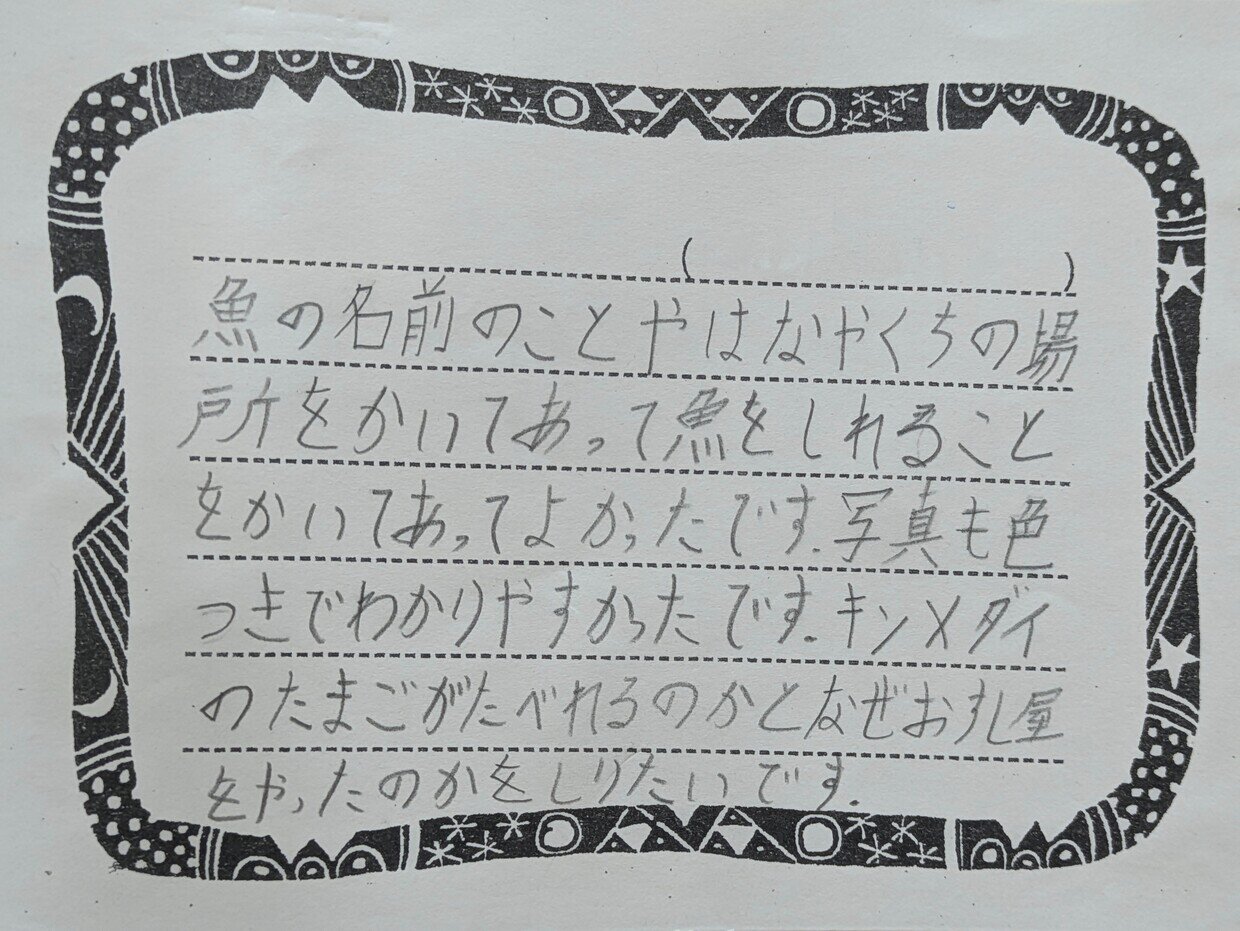 (　　　　)
魚の名前のことやはなやくちの場
所をかいてあって魚をしれること
をかいてあってよかったです.写真も色
つきでわかりやすかったです.キンメダイ
のたまごがたべれるのかとなぜおすし屋
をやったのかをしりたいです.